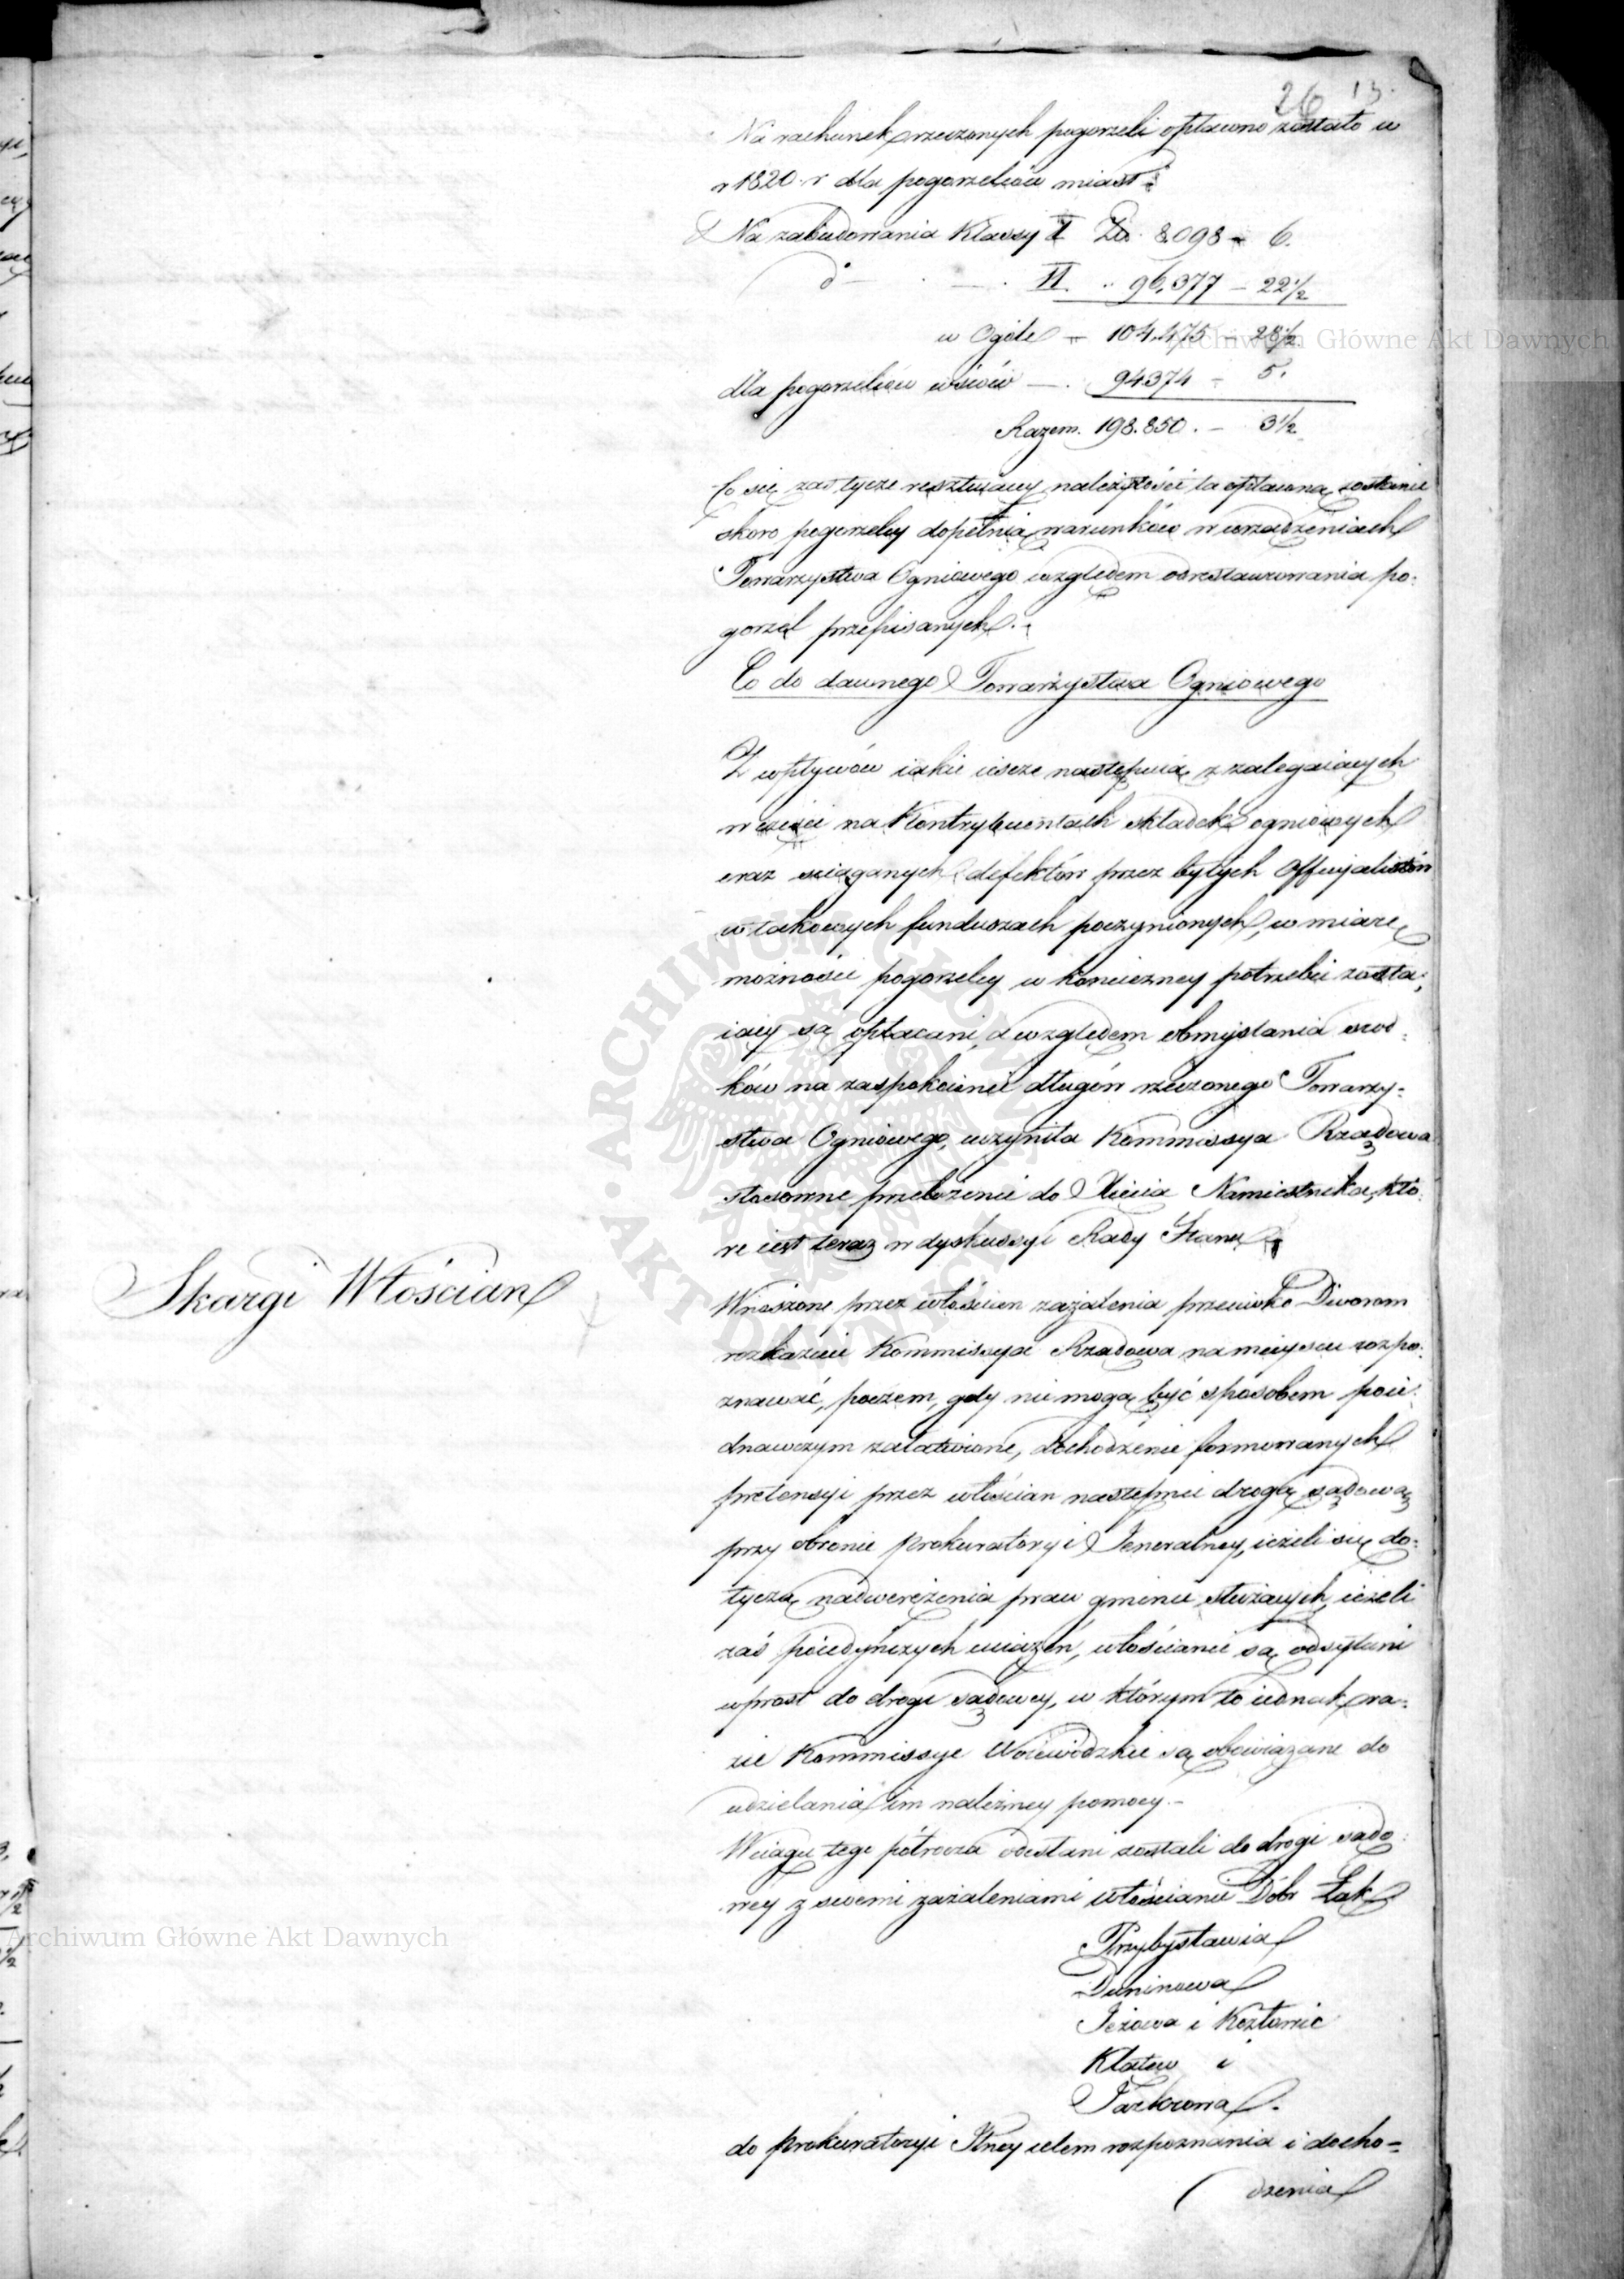 26 13.
Na rachunek rzeczonych pogorzeli opłacono zostało w
r 1820. r dla pogorzelców miast:
Na zabudowania Klassy I Zł. 8.098 - 6.
d° - . - . II. .. 96,377 - 22 1/2
w Ogóle - 104.475 - 28 1/2
dla pogorzelców wsiów - . 94374 - 5.
Razem. 198.850. - 3 1/2
Co się zaś tycze resztuiącey należytości ta opłaconą zostanie
skoro pogorzelcy dopełnią warunków w urządzeniach
Towarzystwa Ogniowego względem odrestaurowania po-
gorzel przepisanych.-
Co do dawnego Towarzystwa Ogniowego
Z wpływów iakie ieszcze następuią z zalegaiących
w części na Kontrybuentach składek ogniowych
oraz ściąganych defektów przez byłych Officyalistów
w takowych funduszach poczynionych, w miarę
możności pogorzelcy w konieczney potrzebie zosta-
iący są opłacani, a względem obmyślania środ-
ków na zaspokoienie długów rzeczonego Towarzy-
stwa Ogniowego, uczyniła Kommissya Rządowa
stosowne przełożenie do Xięcia Namiestnika, któ-
re iest teraz w dyskussyi Rady Stanu
Skargi Włościan
Wnoszone przez włościan zażalenia przeciwko Dworom
rozkazuie Kommissya Rządowa na mieyscu rozpo-
znawać, poczem, gdy nie mogą być sposobem poie-
dnawczym załatwione, dochodzenie formowanych
pretensyi przez włościan następuie drogą sądową
przy obronie Prokuratoryi Jeneralney, ieżeli się do-
tyczą nadwerężenia praw gminie służących, ieżeli
zaś poiedyńczych uciążeń, włościanie są odsyłani
wprost do drogi sądowey, w którym to iednak ra-
zie Kommissye Woiewódzkie są obowiązane do
udzielania im należney pomocy.-
W ciągu tego półrocza odesłani zostali do drogi sądo-
wey z swemi zażaleniami włościanie Dóbr Łąk
Przybysławia
Duninowa
Jeżowa i Kozłowic
Klatew i
Jarkowa.
do Prokuratoryi Jlney celem rozpoznania i docho-
dzenia
Archiwum Główne Akt Dawnych
Archiwum Główne Akt Dawnych
ARCHIWUM GŁÓWNE AKT DAWNYCH